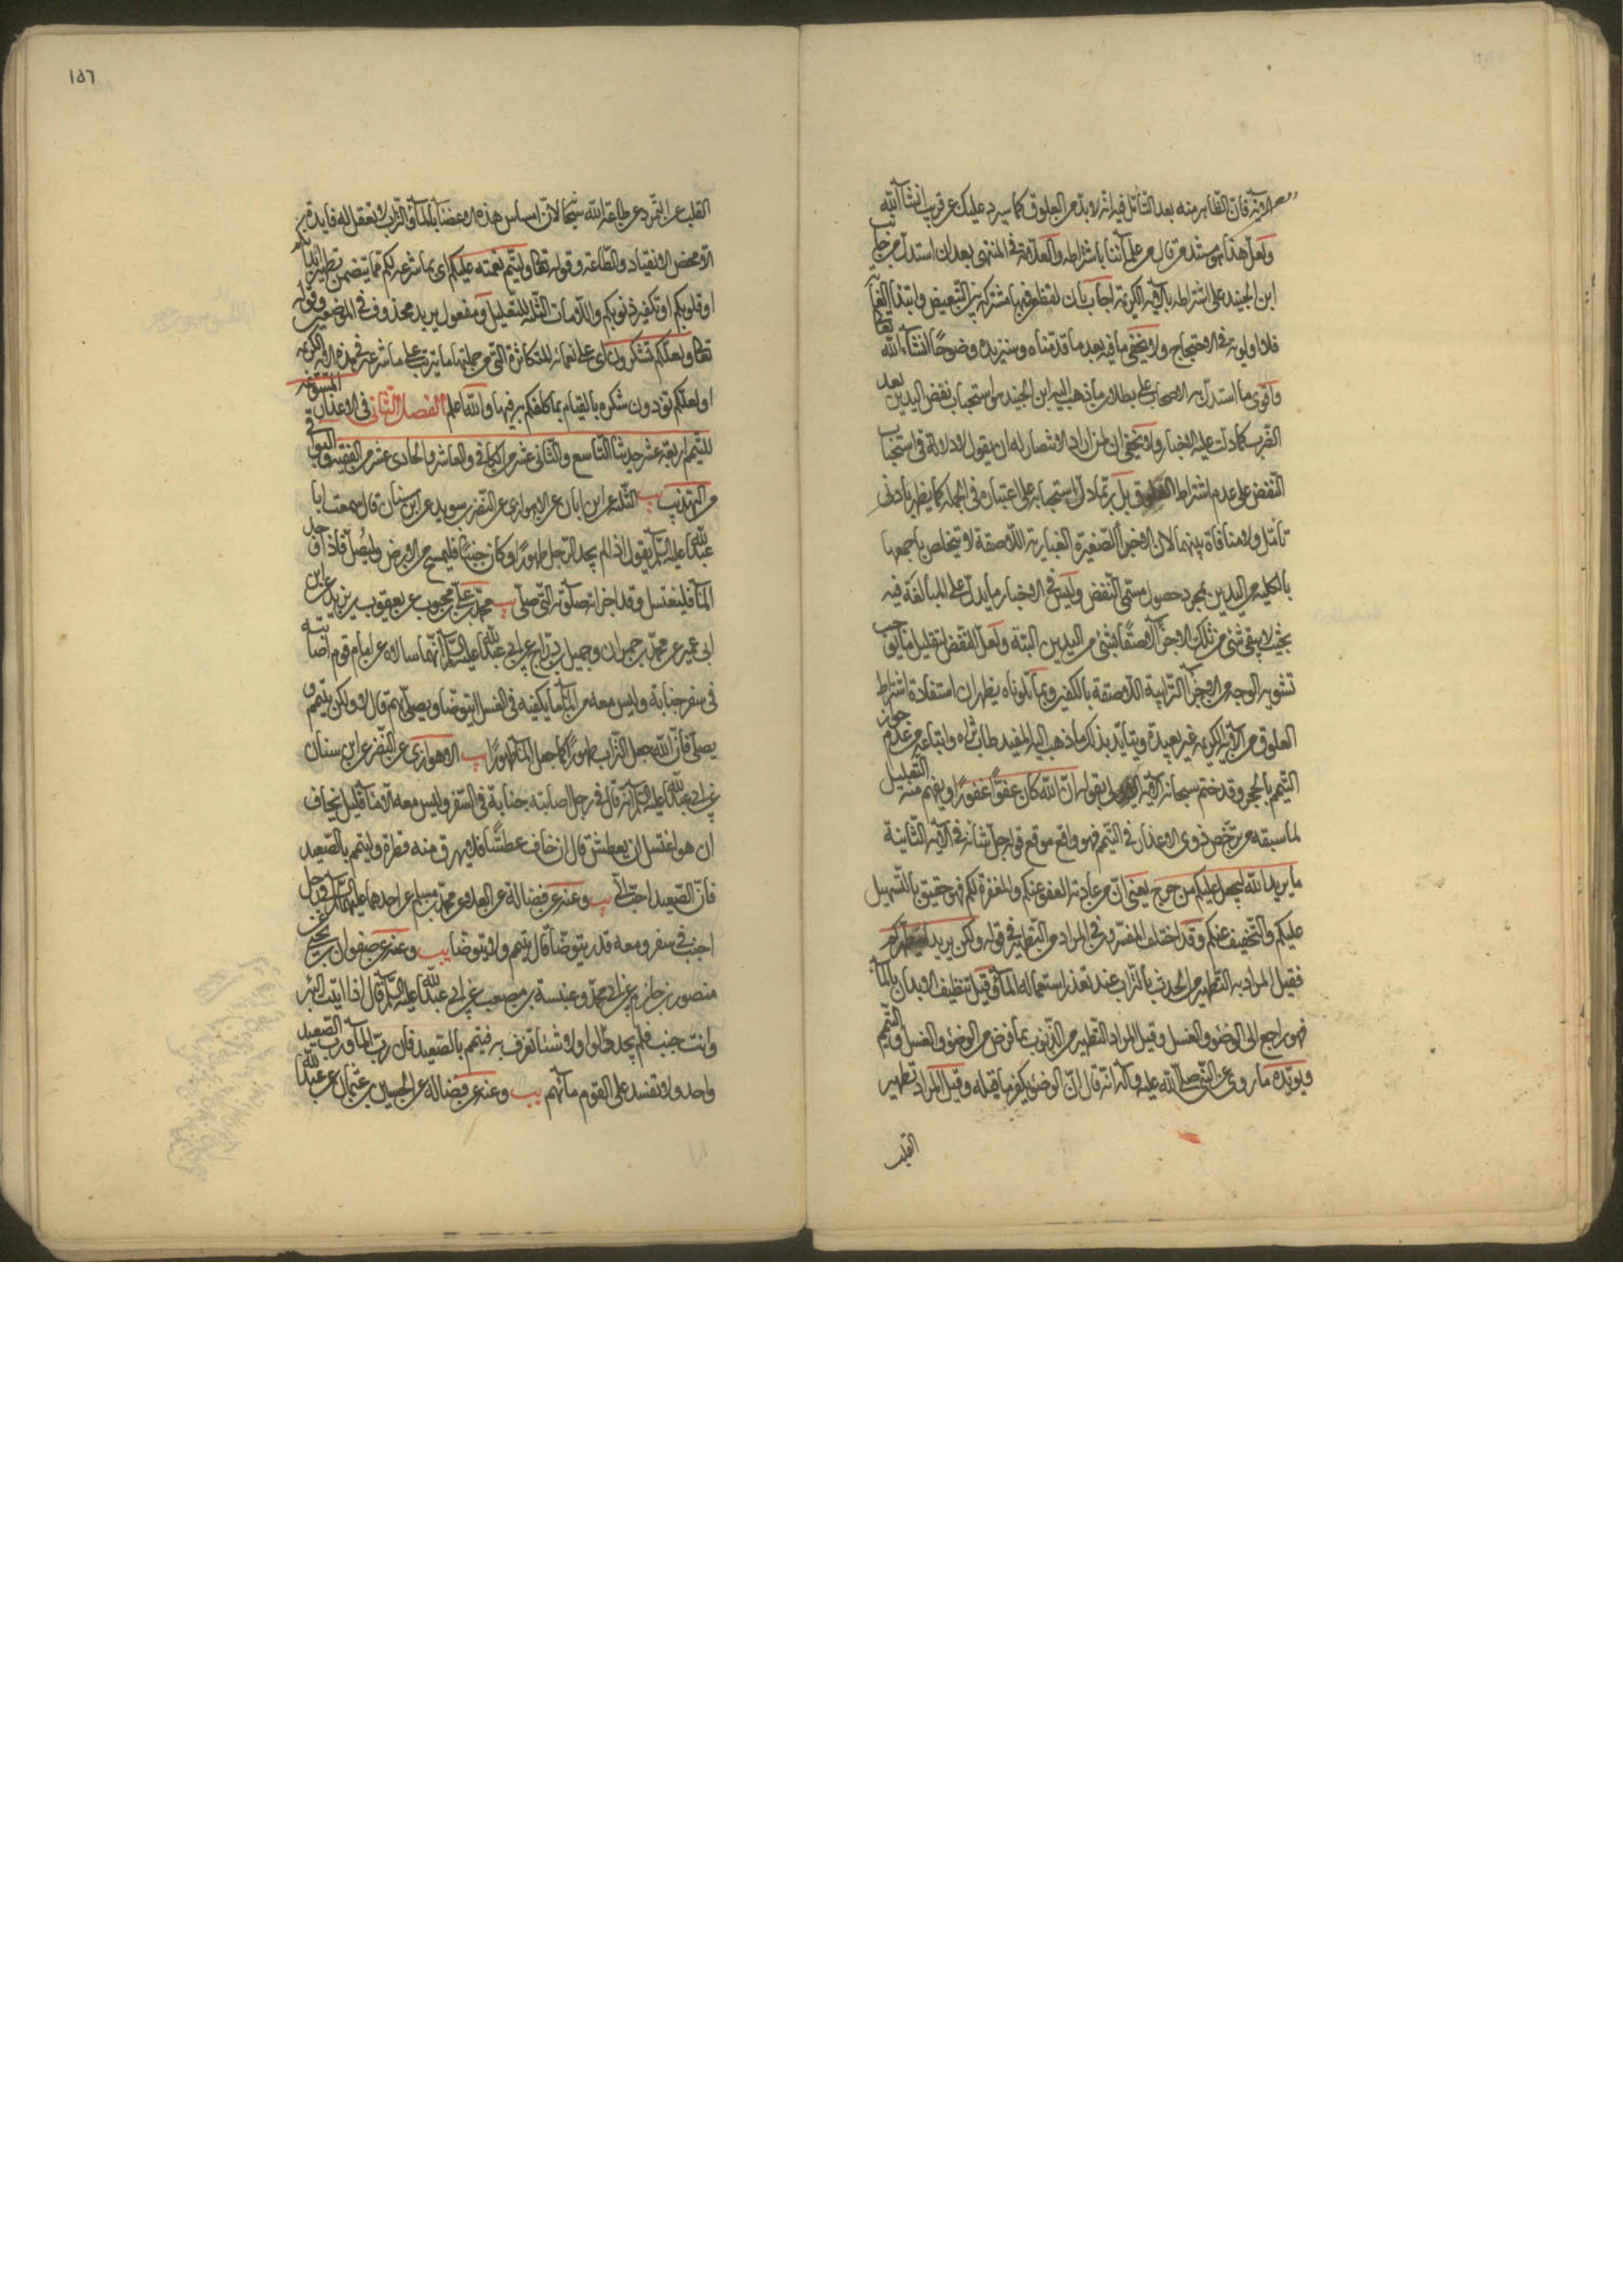 الآية فان الظاهر منه بعد التأمل فيه انه لا بد من العلوق كما سيرد عليك عن قريب انشاء الله
ولعل هذا هو مستند من قال من علمائنا باشتراطه والعلامة في المنتهى بعد ان استدل من جانب
ابن الجنيد على اشتراطه بالآية الكريمة اجاب بان لفظة من فيها مشتركة بين التبعيض وابتداء الغاية
فلا اولوية في الاحتجاج ولا يخفى ما فيه بعد ما قدمناه وسنزيده وضوحا انشاء الله تعالى
واقوى ما استدل به الاصحاب على بطلان ما ذهب اليه ابن الجنيد هو استحباب نفض اليدين بعد
الضرب كما دلت عليه الاخبار ولا يخفى ان لمن اراد الانتصار له ان يقول لا دلالة في استحباب
النفض على عدم اشتراط العلوق بل ربما دل استحبابه على اعتباره في الجملة كما يظهر بادنى
تأمل ولا منافاة بينهما لان الاجزاء الصغيرة الغبارية اللاصقة لا يتخلص باجمعها
بالكلية من اليدين بمجرد حصول مسمى النفض وليس في الاخبار ما يدل على المبالغة فيه
بحيث لا يبقى شئ من تلك الاجزاء لاصقا بشئ من اليدين البتة ولعل النفض لتقليل ما يوجب
تشويه الوجه من الاجزاء الترابية اللاصقة بالكفين وبما تلوناه يظهر ان استفادة اشتراط
العلوق من الآية الكريمة غير بعيدة ويتأيد بذلك ما ذهب اليه المفيد طاب ثراه واتباعه من عدم جواز
التيمم بالحجر وقد ختم سبحانه الآية الاولى بقوله ان الله كان عفوا غفورا ويفهم منه التعليل
لما سبقه من ترخص ذوي الاعذار في التيمم فهو واقع موقع قوله جل شانه في الآية الثانية
ما يريد الله ليجعل عليكم من حرج يعني ان من عادته العفو عنكم والمغفرة لكم فهو حقيق بالتسهيل
عليكم والتخفيف عنكم وقد اختلف المفسرون في المراد من التطهير في قوله ولكن يريد ليطهركم
فقيل المراد به التطهير من الحدث بالتراب عند تعذر استعمال الماء وقيل تنظيف الابدان بالماء
فهو راجع الى الوضوء والغسل وقيل المراد التطهير من الذنوب بما فرض من الوضوء والغسل والتيمم
ويؤيده ما روى عن النبي صلى الله عليه وآله انه قال ان الوضوء يكفر ما قبله وقيل المراد تطهير
القلب
١٥٦
القلب عن التمرد عن طاعة الله سبحانه لان امساس هذه الاعضاء بالماء والتراب لا يعقل له فايدة
الا محض الانقياد والطاعة وقوله تعالى وليتم نعمته عليكم اي بما شرعه لكم مما يتضمن تطهير ابدانكم
او قلوبكم او تكفير ذنوبكم واللامات الثلث للتعليل ومفعول يريد محذوف في الموضعين وقوله
تعالى ولعلكم تشكرون اي على نعمائه المتكاثرة التي من جملتها ما يترتب على ما شرعه في هذه الآية الكريمة
او لعلكم تؤدون شكره بالقيام بما كلفكم به فيها والله اعلم الفصل الثاني في الاعذار المسوغة
للتيمم اربعة عشر حديثا التاسع والثاني عشر من الكافي والعاشر والحادي عشر من الفقيه والبواقي
من التهذيب يب الثلثة عن ابن ابان عن الاهوازي عن النضر بن سويد عن ابن سنان قال سمعت ابا
عبد الله عليه السلام يقول اذا لم يجد الرجل طهورا وكان جنبا فليمسح من الارض وليصل فاذا وجد
الماء فليغتسل وقد اجزاته صلوته التي صلى يب محمد بن علي بن محبوب عن يعقوب بن يزيد عن ابن
ابي عمير عن محمد بن حمران وجميل بن دراج عن ابي عبد الله عليه السلام انهما سالاه عن امام قوم اصابته
في سفر جنابة وليس معه من الماء ما يكفيه في الغسل ايتوضأ ويصلي بهم قال لا ولكن يتيمم و
يصلي فان الله جعل التراب طهورا كما جعل الماء طهورا يب الاهوازي عن النضر عن ابن سنان
عن ابي عبد الله عليه السلام انه قال في رجل اصابته جنابة في السفر وليس معه الا ماء قليل يخاف
ان هو اغتسل ان يعطش قال ان خاف عطشا فلا يهرق منه قطرة وليتيمم بالصعيد
فان الصعيد احب الي يب وعنه عن فضالة عن العلاء عن محمد بن مسلم عن احدهما عليهما السلام في رجل
اجنب في سفر ومعه ماء قدر يتوضأ قال يتيمم ولا يتوضأ يب وعنه عن صفوان بن يحيى عن
منصور بن حازم عن ابن ابي يعفور وعنبسة بن مصعب عن ابي عبد الله عليه السلام قال اذا اتيت البئر
وانت جنب فلم تجد دلوا ولا شيئا تغرف به فتيمم بالصعيد فان رب الماء ورب الصعيد
واحد ولا تفسد على القوم ماءهم يب وعنه عن فضالة عن الحسين بن عثمان عن عبد الله